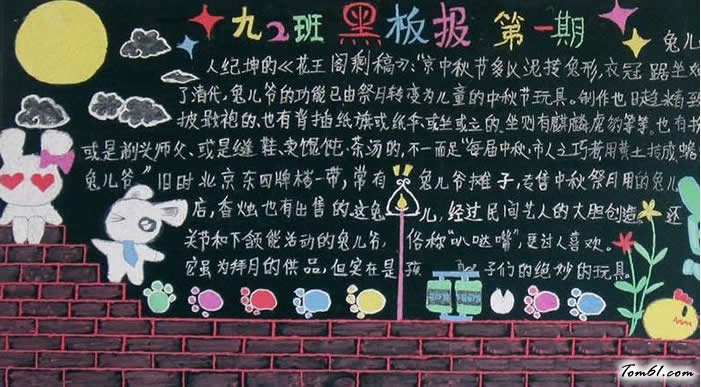 九2班 黑板报 第一期
兔儿
人纪坤的《花王阁剩稿》:“京中秋节多以泥抟兔形,衣冠踞坐如
了清代,兔儿爷的功能已由祭月转变为儿童的中秋节玩具。制作也日趋精致
披 袍的,也有背插纸旗或纸伞,或坐或立的。坐则有麒麟虎豹等等。也有扮
或是剃头师父、或是缝鞋、卖馄饨、茶汤的,不一而足“每届中秋,市人之巧者用黄土抟成蟾
兔儿爷”旧时北京东四牌楼一带,常有兔儿爷摊子,专售中秋祭月用的兔儿
店,香烛也有出售的。这兔儿,经过民间艺人的大胆创造 还
关节和下颌能活动的兔儿爷,俗称“叭哒嘴”,更讨人喜欢。
它虽为拜月的供品,但实在是孩 子们的绝妙的玩具。
Tom61.com